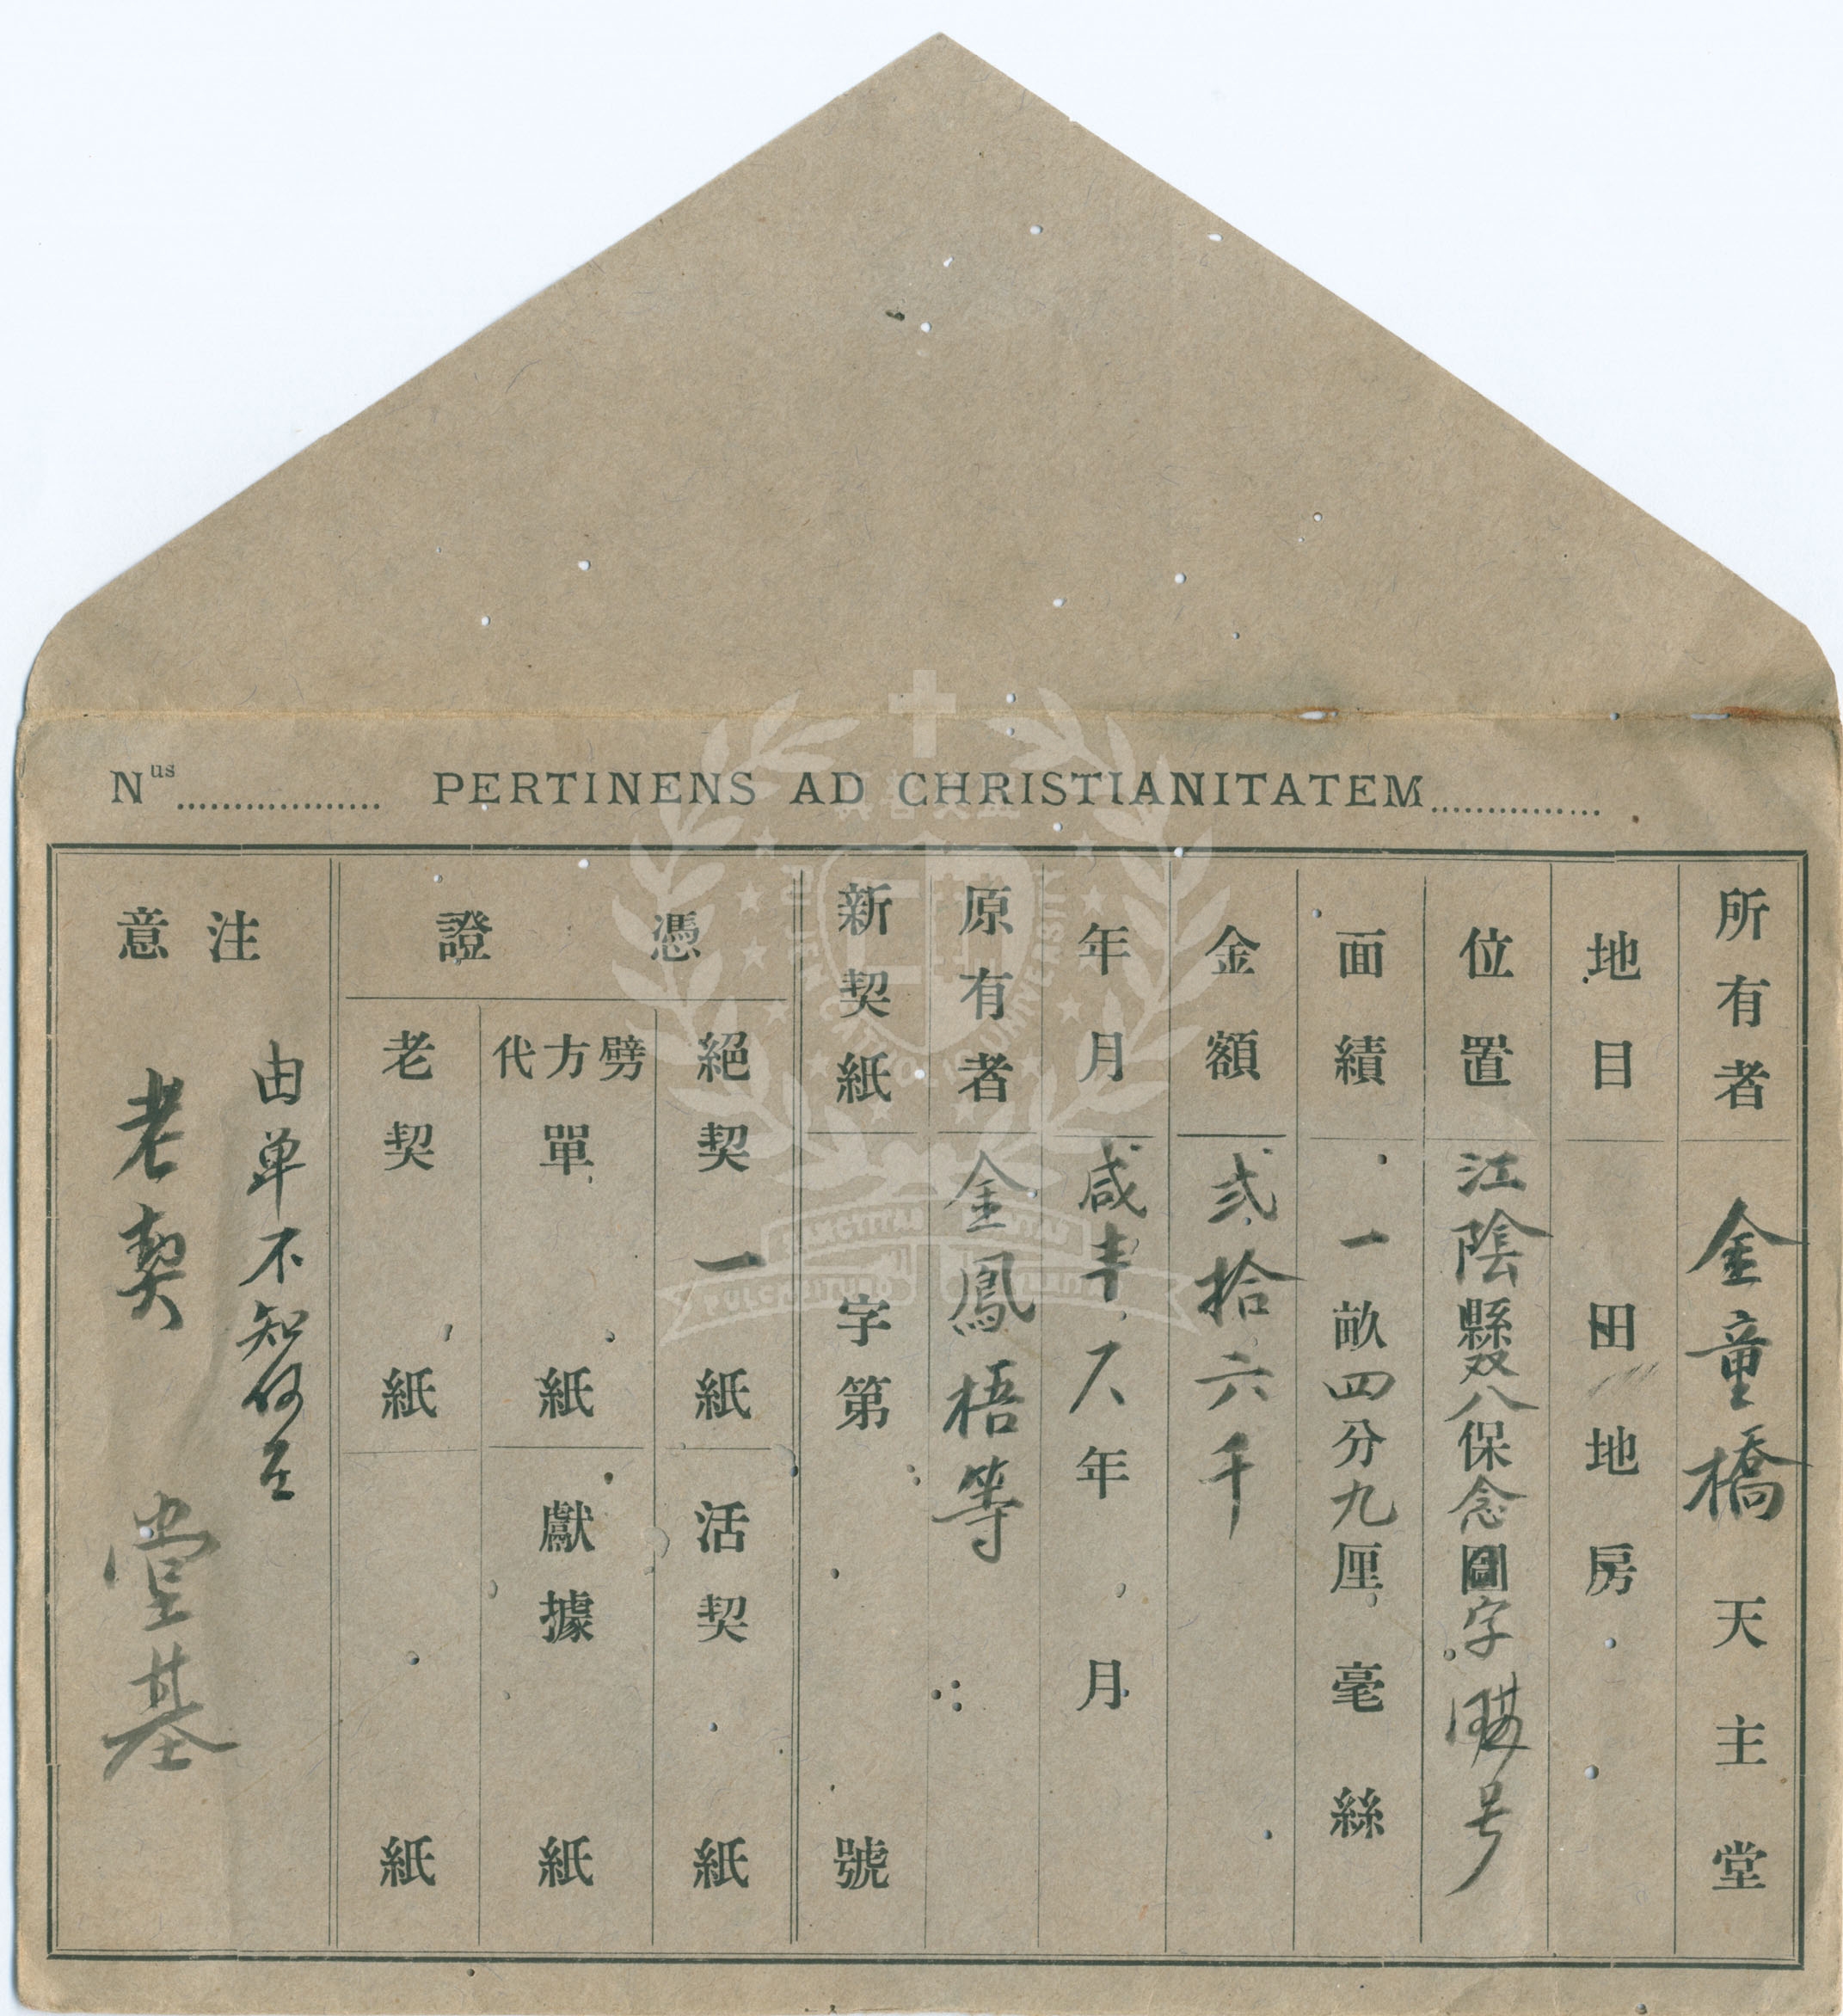 Nus.................. PERTINENS AD CHRISTIANITATEM...............
所有者 金童橋天主堂
地目 田地房
位置 江陰縣双八保念圖字 号
面績 一畝四分九厘毫絲
金額 弍拾六千
年月 咸丰八年月
原有者 金鳳梧等
新契紙 字第號
憑證
絕契一紙 活契紙
劈方代單紙 獻據紙
老契紙 紙
注意
由单不知何在
老契 堂基